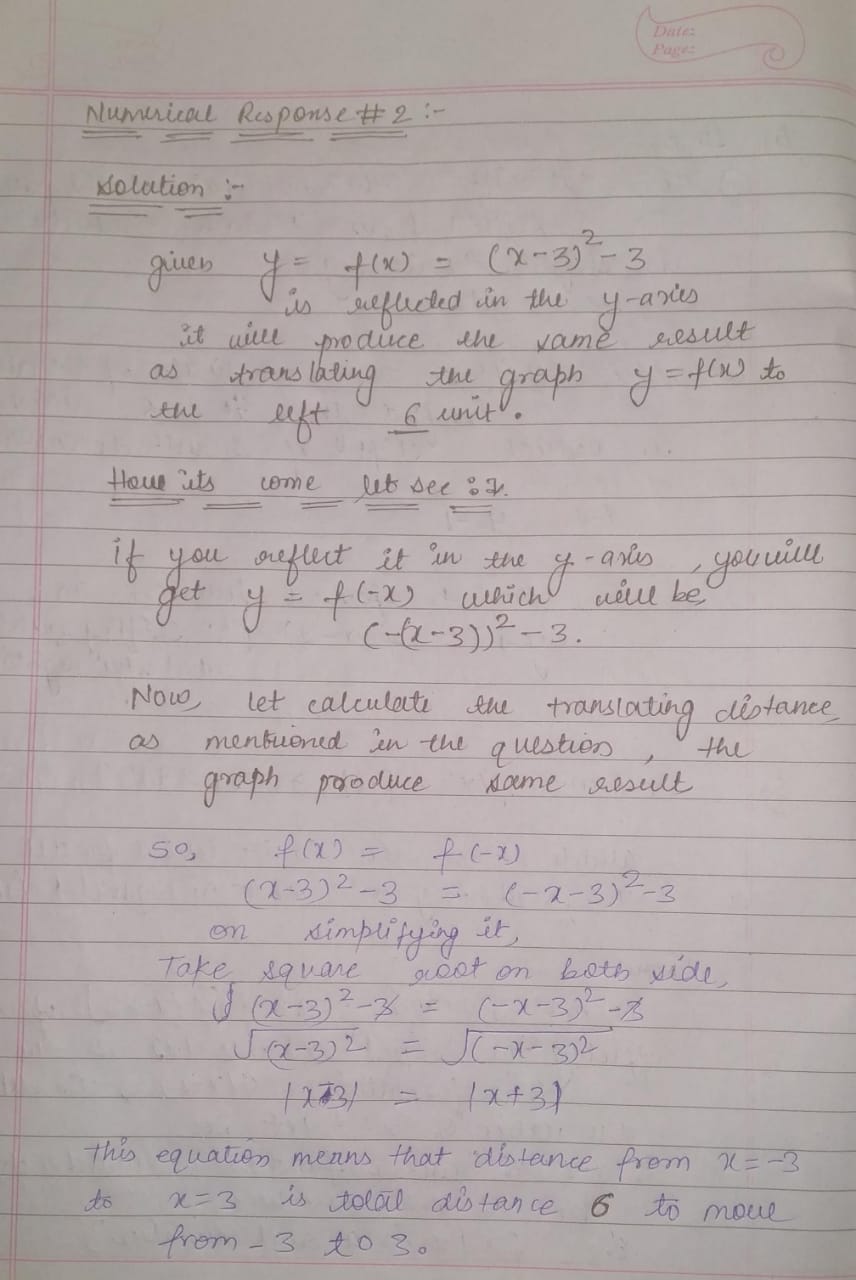 Date:
Page:
Numerical Response # 2 :-
Solution :-
given y = f(x) = (x-3)² - 3
is reflected in the y-axis
it will produce the same result
as translating the graph y = f(x) to
the left 6 unit.
How its come let see :-
if you reflect it in the y-axis, you will
get y = f(-x) which will be
(-(x-3))² - 3.
Now, let calculate the translating distance
as mentioned in the question, the
graph produce same result
So, f(x) = f(-x)
(x-3)² - 3 = (-x-3)² - 3
on simplifying it,
Take square root on both side,
√(x-3)² - 3 = (-x-3)² - 3
√(x-3)² = √(-x-3)²
|x-3| = |x+3|
this equation means that distance from x = -3
to x = 3 is total distance 6 to move
from -3 to 3.